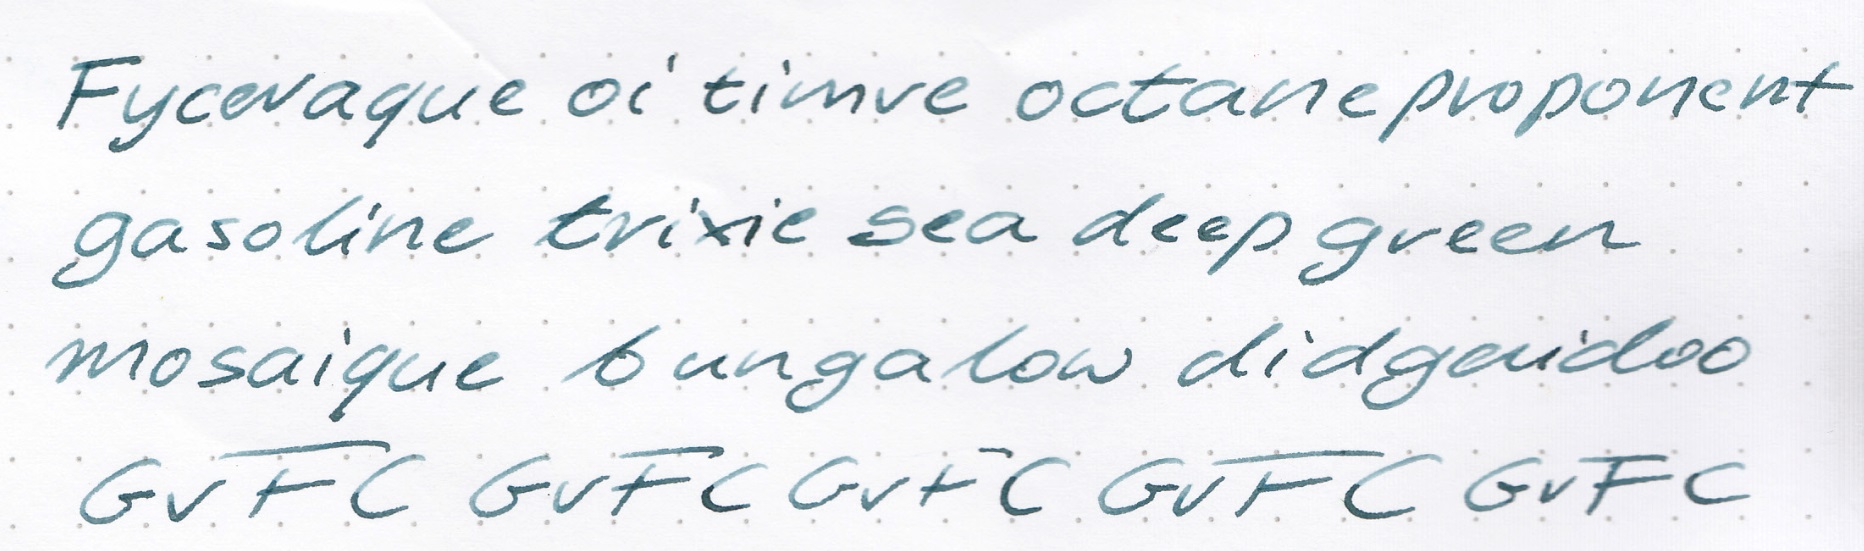 oi timve octane proponent
gasoline trixie sea deep green
mosaique bungalow
GvFC GvFC GvFC GvFC GvFC